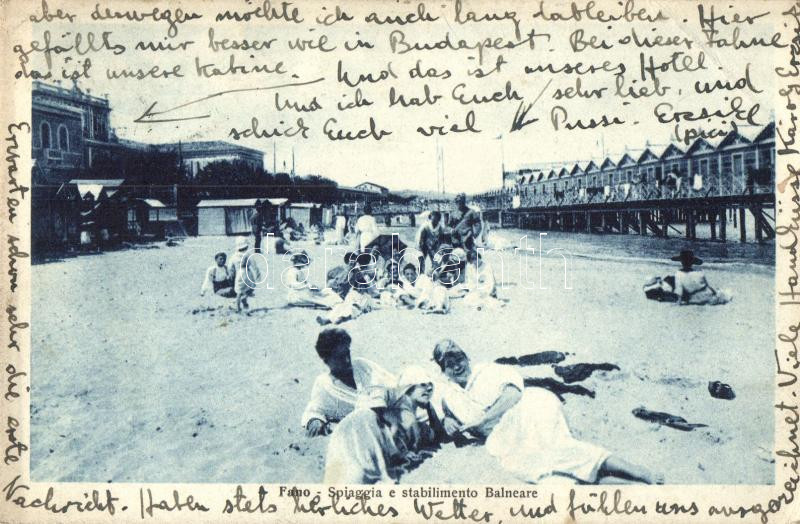 aber deswegen möchte ich auch lang dableiben. Hier
gefällts mir besser wie in Budapest. Bei dieser Fahne
das ist unsere Kabine. Und das ist unseres Hotel
und ich hab Euch sehr lieb, und
schick Euch viel Pussi. Erzsike
darabanth.com
Fano - Spiaggia e stabilimento Balneare
Erwarten schon sehr die erste
Nachricht. Haben stets herrliches Wetter, und fühlen uns ausge
zeichnet. Viele Handküsse